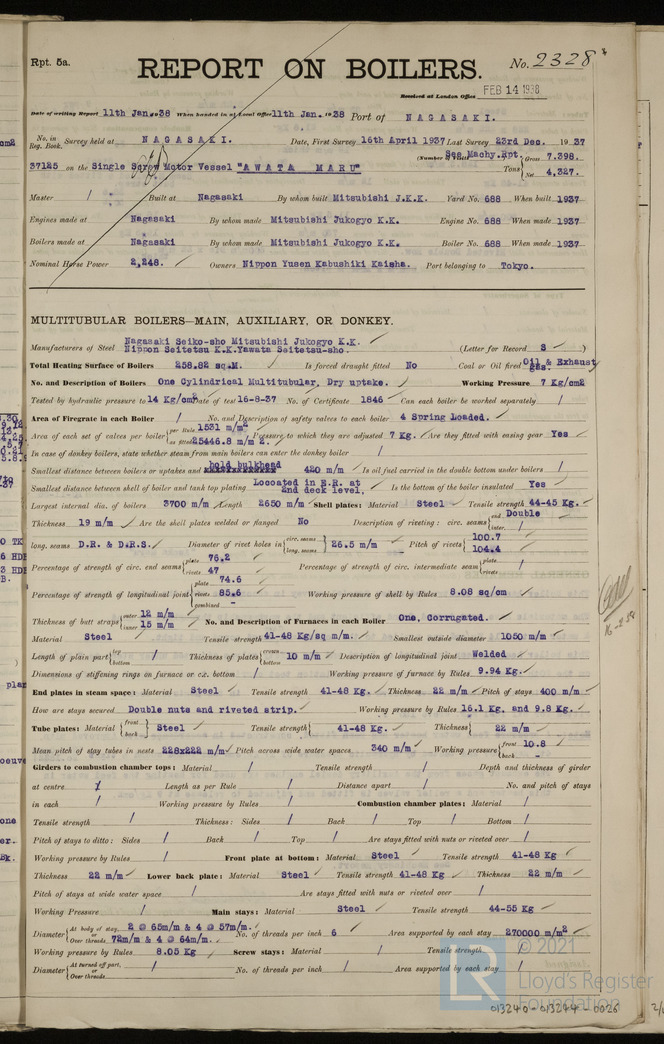 Rpt. 5a.
REPORT ON BOILERS.
No. 2328
Received at London Office FEB 14 1938
Date of writing Report 11th Jan. 1938 When handed in at Local Office 11th Jan. 1938 Port of NAGASAKI.
No. in Reg. Book. Survey held at NAGASAKI. Date, First Survey 16th April 1937 Last Survey 23rd Dec. 1937
See Machy. Rpt.
37125 on the Single Screw Motor Vessel "AWATA MARU" Tons { Gross 7,398. Net 4,327.
Master / Built at Nagasaki By whom built Mitsubishi J.K.K. Yard No. 688 When built 1937
Engines made at Nagasaki By whom made Mitsubishi Jukogyo K.K. Engine No. 688 When made 1937
Boilers made at Nagasaki By whom made Mitsubishi Jukogyo K.K. Boiler No. 688 When made 1937
Nominal Horse Power 2,248. Owners Nippon Yusen Kabushiki Kaisha. Port belonging to Tokyo.
MULTITUBULAR BOILERS—MAIN, AUXILIARY, OR DONKEY.
Manufacturers of Steel Nagasaki Seiko-sho Mitsubishi Jukogyo K.K.
Nippon Seitetsu K.K. Yawata Seitetsu-sho. (Letter for Record S )
Total Heating Surface of Boilers 258.82 sq.M. Is forced draught fitted No Coal or Oil fired Oil & Exhaust gas.
No. and Description of Boilers One Cylindrical Multitubular, Dry uptake. Working Pressure 7 Kg/cm2
Tested by hydraulic pressure to 14 Kg/cm2 Date of test 16-8-37 No. of Certificate 1846 Can each boiler be worked separately /
Area of Firegrate in each Boiler / No. and Description of safety valves to each boiler 4 Spring Loaded.
Area of each set of valves per boiler { per Rule 1531 m/m2 as fitted 25446.8 m/m 2. Pressure to which they are adjusted 7 Kg. Are they fitted with easing gear Yes
In case of donkey boilers, state whether steam from main boilers can enter the donkey boiler /
Smallest distance between boilers or uptakes and hold bulkhead 420 m/m Is oil fuel carried in the double bottom under boilers /
Smallest distance between shell of boiler and tank top plating Locoated in E.R. at 2nd deck level, Is the bottom of the boiler insulated Yes
Largest internal dia. of boilers 3700 m/m Length 2650 m/m Shell plates: Material Steel Tensile strength 44-45 Kg.
Thickness 19 m/m Are the shell plates welded or flanged No Description of riveting: circ. seams { end Double inter. /
long. seams D.R. & D.R.S. Diameter of rivet holes in { circ. seams long. seams 26.5 m/m Pitch of rivets { 100.7 104.4
Percentage of strength of circ. end seams { plate 76.2 rivets 47 Percentage of strength of circ. intermediate seam { plate rivets /
Percentage of strength of longitudinal joint { plate 74.6 rivets 85.6 combined - Working pressure of shell by Rules 8.08 sq/cm
Thickness of butt straps { outer 12 m/m inner 15 m/m No. and Description of Furnaces in each Boiler One, Corrugated.
Material Steel Tensile strength 41-48 Kg/sq m/m. Smallest outside diameter 1050 m/m
Length of plain part { top bottom / Thickness of plates { crown bottom 10 m/m Description of longitudinal joint Welded
Dimensions of stiffening rings on furnace or c.c. bottom / Working pressure of furnace by Rules 9.94 Kg.
End plates in steam space: Material Steel Tensile strength 41-48 Kg. Thickness 22 m/m Pitch of stays 400 m/m
How are stays secured Double nuts and riveted strip. Working pressure by Rules 15.1 Kg. and 9.8 Kg.
Tube plates: Material { front back Steel Tensile strength { 41-48 Kg. Thickness { 22 m/m
Mean pitch of stay tubes in nests 228x222 m/m Pitch across wide water spaces 340 m/m Working pressure { front 10.8 back -
Girders to combustion chamber tops: Material / Tensile strength / Depth and thickness of girder
at centre / Length as per Rule / Distance apart / No. and pitch of stays
in each / Working pressure by Rules / Combustion chamber plates: Material /
Tensile strength / Thickness: Sides / Back / Top / Bottom /
Pitch of stays to ditto: Sides / Back / Top / Are stays fitted with nuts or riveted over /
Working pressure by Rules / Front plate at bottom: Material Steel Tensile strength 41-48 Kg
Thickness 22 m/m Lower back plate: Material Steel Tensile strength 41-48 Kg Thickness 22 m/m
Pitch of stays at wide water space / Are stays fitted with nuts or riveted over /
Working Pressure / Main stays: Material Steel Tensile strength 44-55 Kg
Diameter { At body of stay, 2 @ 65m/m & 4 @ 57m/m. or Over threads 72m/m & 4 @ 64m/m. No. of threads per inch 6 Area supported by each stay 270000 m/m2
Working pressure by Rules 8.05 Kg Screw stays: Material / Tensile strength
Diameter { At turned off part, or Over threads / No. of threads per inch / Area supported by each stay /
© 2021
Lloyd's Register
Foundation
LR
013240-013244-0026